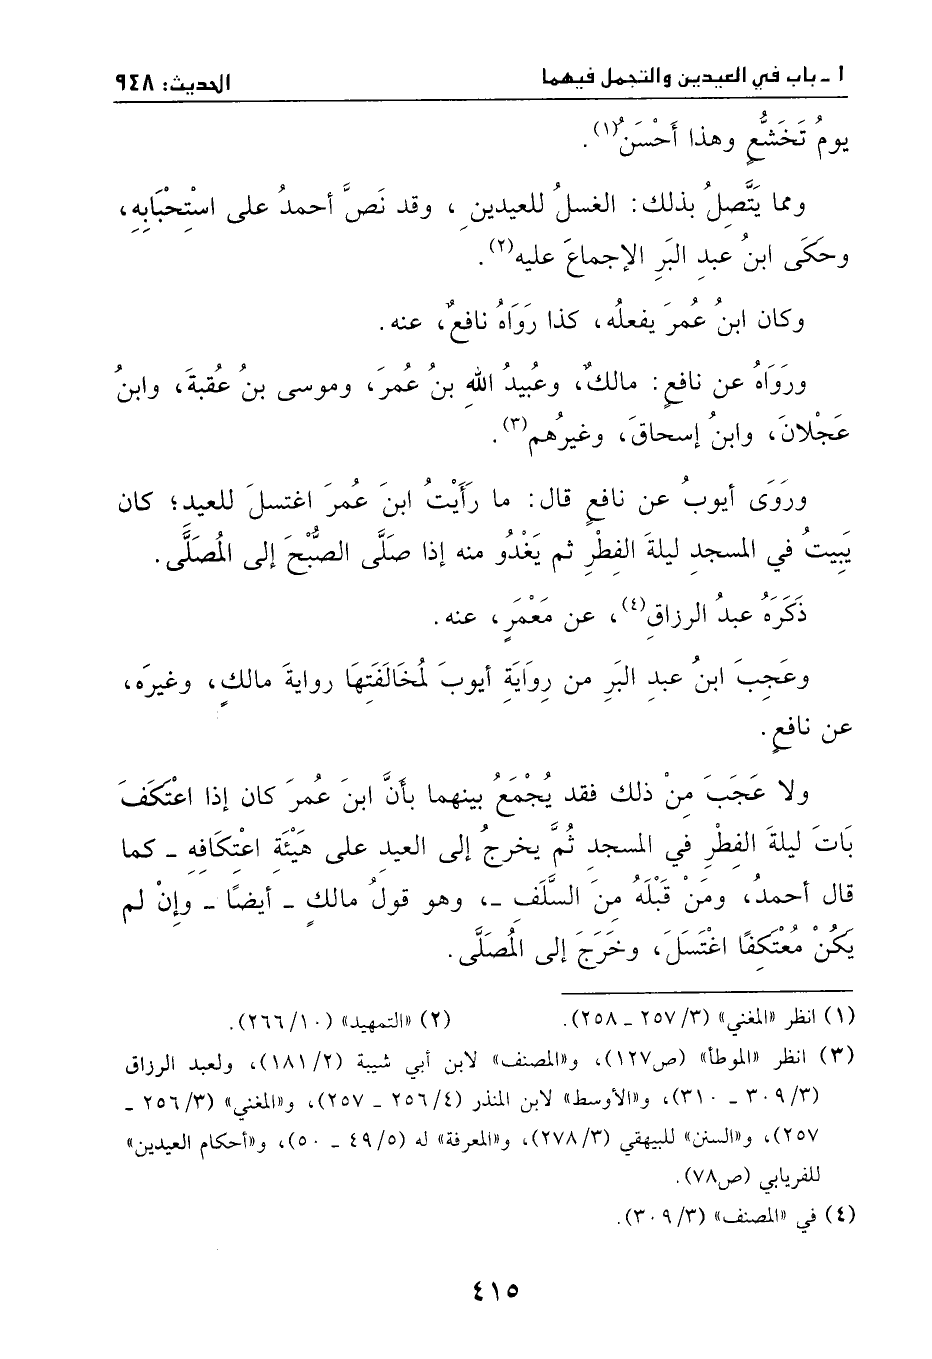 ١ ـ باب في العيدين والتجمل فيهما
الحديث: ٩٤٨
يومُ تَخَشُّعٍ وهذا أَحْسَنُ(١).
ومما يَتَّصِلُ بذلك: الغسلُ للعيدينِ، وقد نَصَّ أحمدُ على اسْتِحْبَابِهِ،
وحَكَى ابنُ عبدِ البَرِ الإجماعَ عليه(٢).
وكان ابنُ عُمرَ يفعلُه، كذا رَوَاهُ نافعٌ، عنه.
ورَوَاهُ عن نافعٍ: مالكٌ، وعُبيدُ اللهِ بنُ عُمرَ، وموسى بنُ عُقبةَ، وابنُ
عَجْلانَ، وابنُ إسحاقَ، وغيرُهم(٣).
ورَوَى أيوبُ عن نافعٍ قال: ما رَأَيْتُ ابنَ عُمرَ اغتسلَ للعيد؛ كان
يَبِيتُ في المسجدِ ليلةَ الفِطْرِ ثم يَغْدُو منه إذا صَلَّى الصُّبْحَ إلى المُصَلَّى.
ذَكَرَهُ عبدُ الرزاقِ(٤)، عن مَعْمَرٍ، عنه.
وعَجِبَ ابنُ عبدِ البَرِ من رِوَايَةِ أيوبَ لمُخَالَفَتِهَا روايةَ مالكٍ، وغيرَه،
عن نافعٍ.
ولا عَجَبَ مِنْ ذلك فقد يُجْمَعُ بينهما بأَنَّ ابنَ عُمرَ كان إذا اعْتَكَفَ
بَاتَ ليلةَ الفِطْرِ في المسجدِ ثُمَّ يخرجُ إلى العيدِ على هَيْئَةِ اعْتِكَافِهِ ـ كما
قال أحمدُ، ومَنْ قَبْلَهُ مِنَ السَّلَفِ ـ، وهو قولُ مالكٍ ـ أيضًا ـ وإِنْ لم
يَكُنْ مُعْتَكِفًا اغْتَسَلَ، وخَرَجَ إلى المُصَلَّى.
(١) انظر «المغني» (٣/ ٢٥٧ ـ ٢٥٨).
(٢) «التمهيد» (١٠/ ٢٦٦).
(٣) انظر «الموطأ» (ص١٢٧)، و«المصنف» لابن أبي شيبة (٢/ ١٨١)، ولعبد الرزاق
(٣/ ٣٠٩ ـ ٣١٠)، و«الأوسط» لابن المنذر (٤/ ٢٥٦ ـ ٢٥٧)، و«المغني» (٣/ ٢٥٦ ـ
٢٥٧)، و«السنن» للبيهقي (٣/ ٢٧٨)، و«المعرفة» له (٥/ ٤٩ ـ ٥٠)، و«أحكام العيدين»
للفريابي (ص٧٨).
(٤) في «المصنف» (٣/ ٣٠٩).
٤١٥